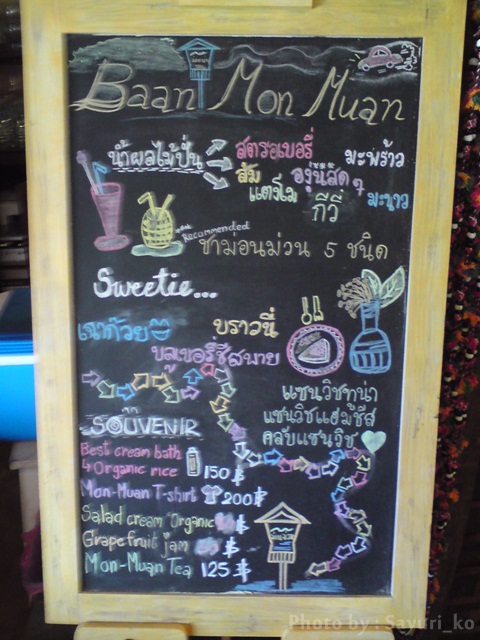 Baan Mon Muan
น้ำผลไม้ปั่น สตรอเบอรี่ มะพร้าว
ส้ม องุ่นสดๆ
แตงโม กีวี่ มะนาว
Recommended
ชาม่อนม่วน 5 ชนิด
Sweetie...
เฉาก๊วย บราวนี่
บลูเบอร์รี่ชีสพาย
แซนวิชทูน่า
แซนวิชแฮมชีส
คลับแซนวิช
SOUVENIR
Best cream bath
4 Organic rice 150 ฿
Mon-Muan T-shirt 200 ฿
Salad cream "Organic" ฿
Grape fruit jam ฿
Mon-Muan Tea 125 ฿
Photo by : Sayuri_ko